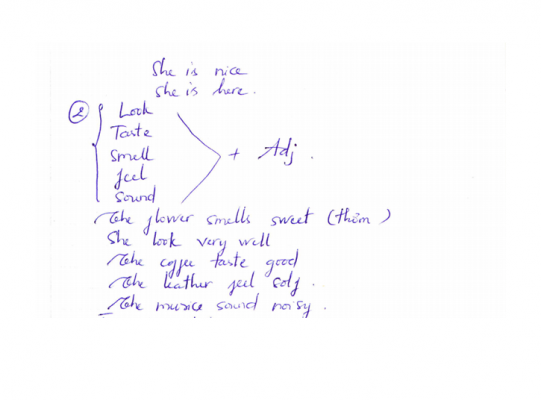 She is nice
She is here.
② Look
Taste
Smell
feel
Sound
+ Adj.
The flower smells sweet (thơm)
She look very well
The coffee taste good
The leather feel solf.
The musice sound noisy.